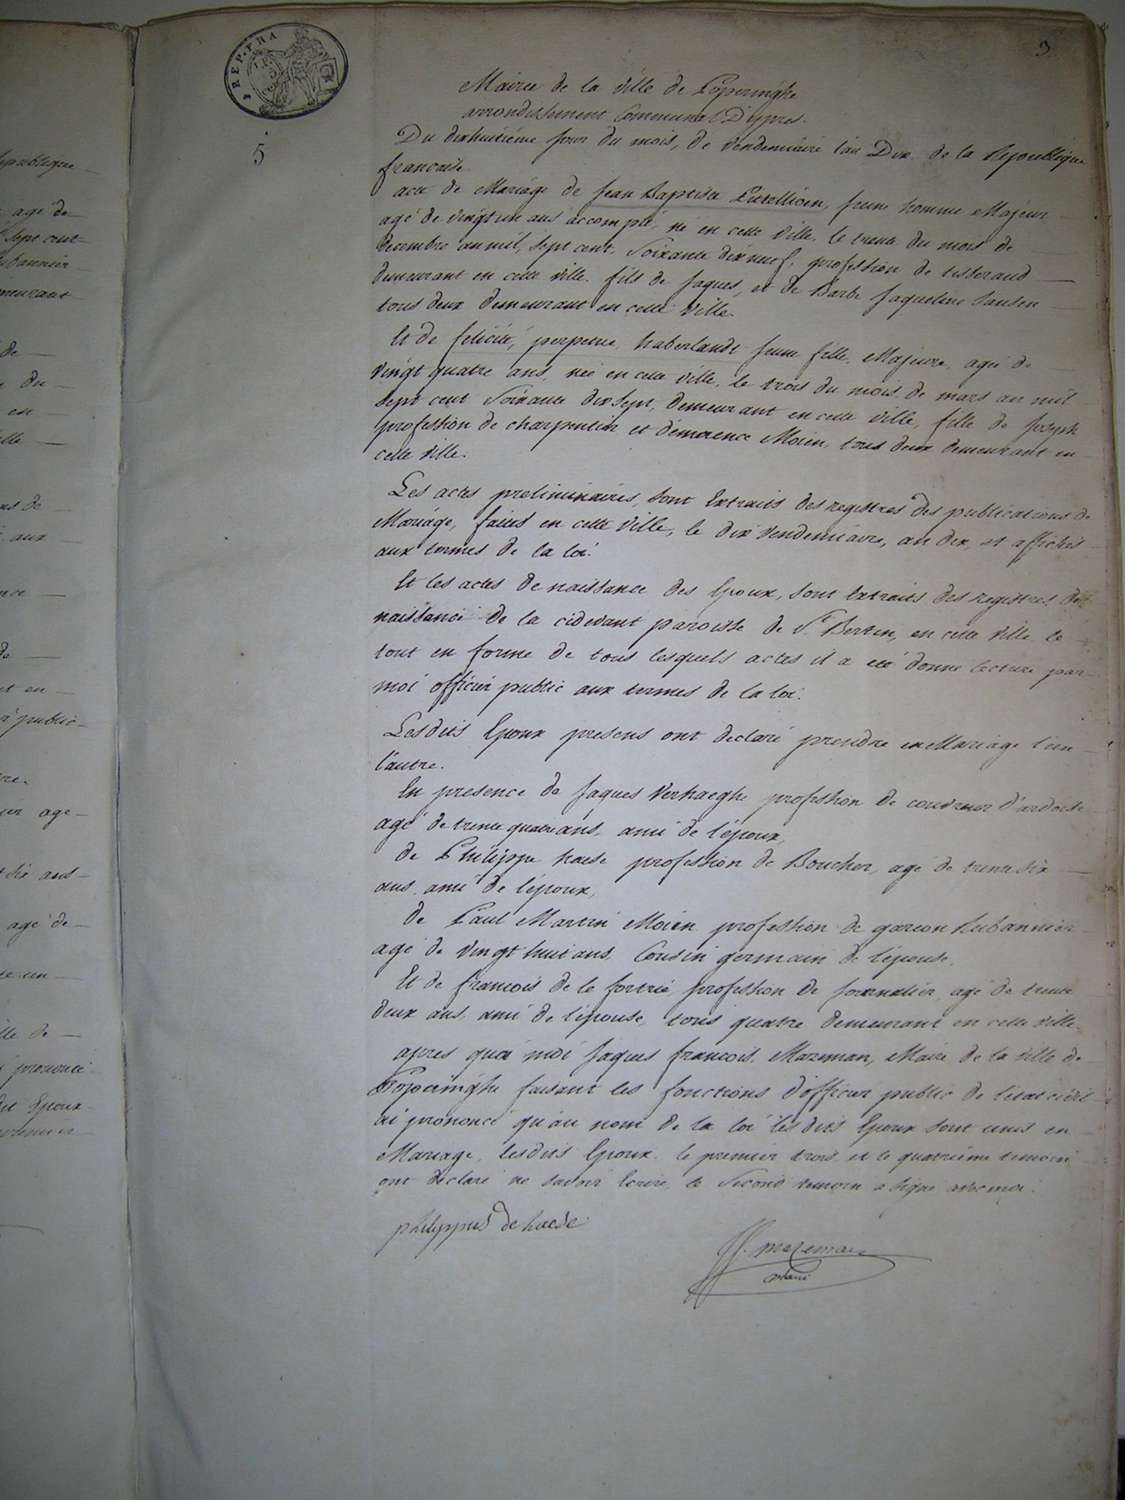 3
REP.FRA
5
Mairie de la ville de Poperinghe
arrondissement Communal D'ypres.
Du dixhuitiéme jour du mois, de Vendemiaire l'an Dix. de la Republique
francaise.
acte de Mariage de Jean Baptiste, jeune homme Majeur
agé de vingt un ans accomplis, né en cette ville, le trente du mois de
decembre an mil, sept cent, Soixante dix neuf, profession de tisserand
demeurant en cette ville. fils de Jaques, et de Barbe Jaqueline Jansen
tous deux demeurant en cette ville.
Et de felicité, perpetue, haberlandt jeune fille, Majeure, agée de
vingt quatre ans, née en cette ville, le trois du mois de mars an mil
sept cent Soixante dix sept, demeurant en cette ville, fille de Joseph
profession de charpentier et d'émerence Moien, tous deux demeurant en
cette ville.
Les actes preliminaires, sont Extraits des registres des publications de
Mariage, faites en cette ville, le dix vendemiaire, an dix, et affichés
aux termes de la loi.
Et les actes de naissance des Epoux, sont Extraits des registres de
naissance de la cidevant paroisse de St. Bertin, en cette ville le
tout en forme de tous lesquels actes il a eté donné lecture par
moi officier public aux termes de la loi.
Lesdits Epoux presens ont declaré prendre en Mariage l'un
l'autre.
En presence de Jaques Verhaeghe profession de couvreur d'ardoise
agé de trente quatre ans, ami de l'époux,
de Philippe haese profession de Boucher, agé de trente six
ans, ami de l'époux,
de Paul Martin Moien profession de garcon Rubannier
agé de vingt huit ans, Cousin germain de l'épouse,
Et de francois de le fortrie, profession de journalier, agé de trente
deux ans, ami de l'épouse, tous quatre demeurant en cette ville,
apres quoi moi Jaques francois, Mazeman, Maire de la ville de
Poperinghe faisant les fonctions d'officier public de l'état civil
ai prononcé qu'au nom de la loi lesdits Epoux sont unis en
Mariage, lesdits Epoux, le premier trois, et le quatriéme temoin
ont declaré ne savoir Ecrire, le Second temoin a signé avec moi.
philippus de haese
J.f. mazeman
maire